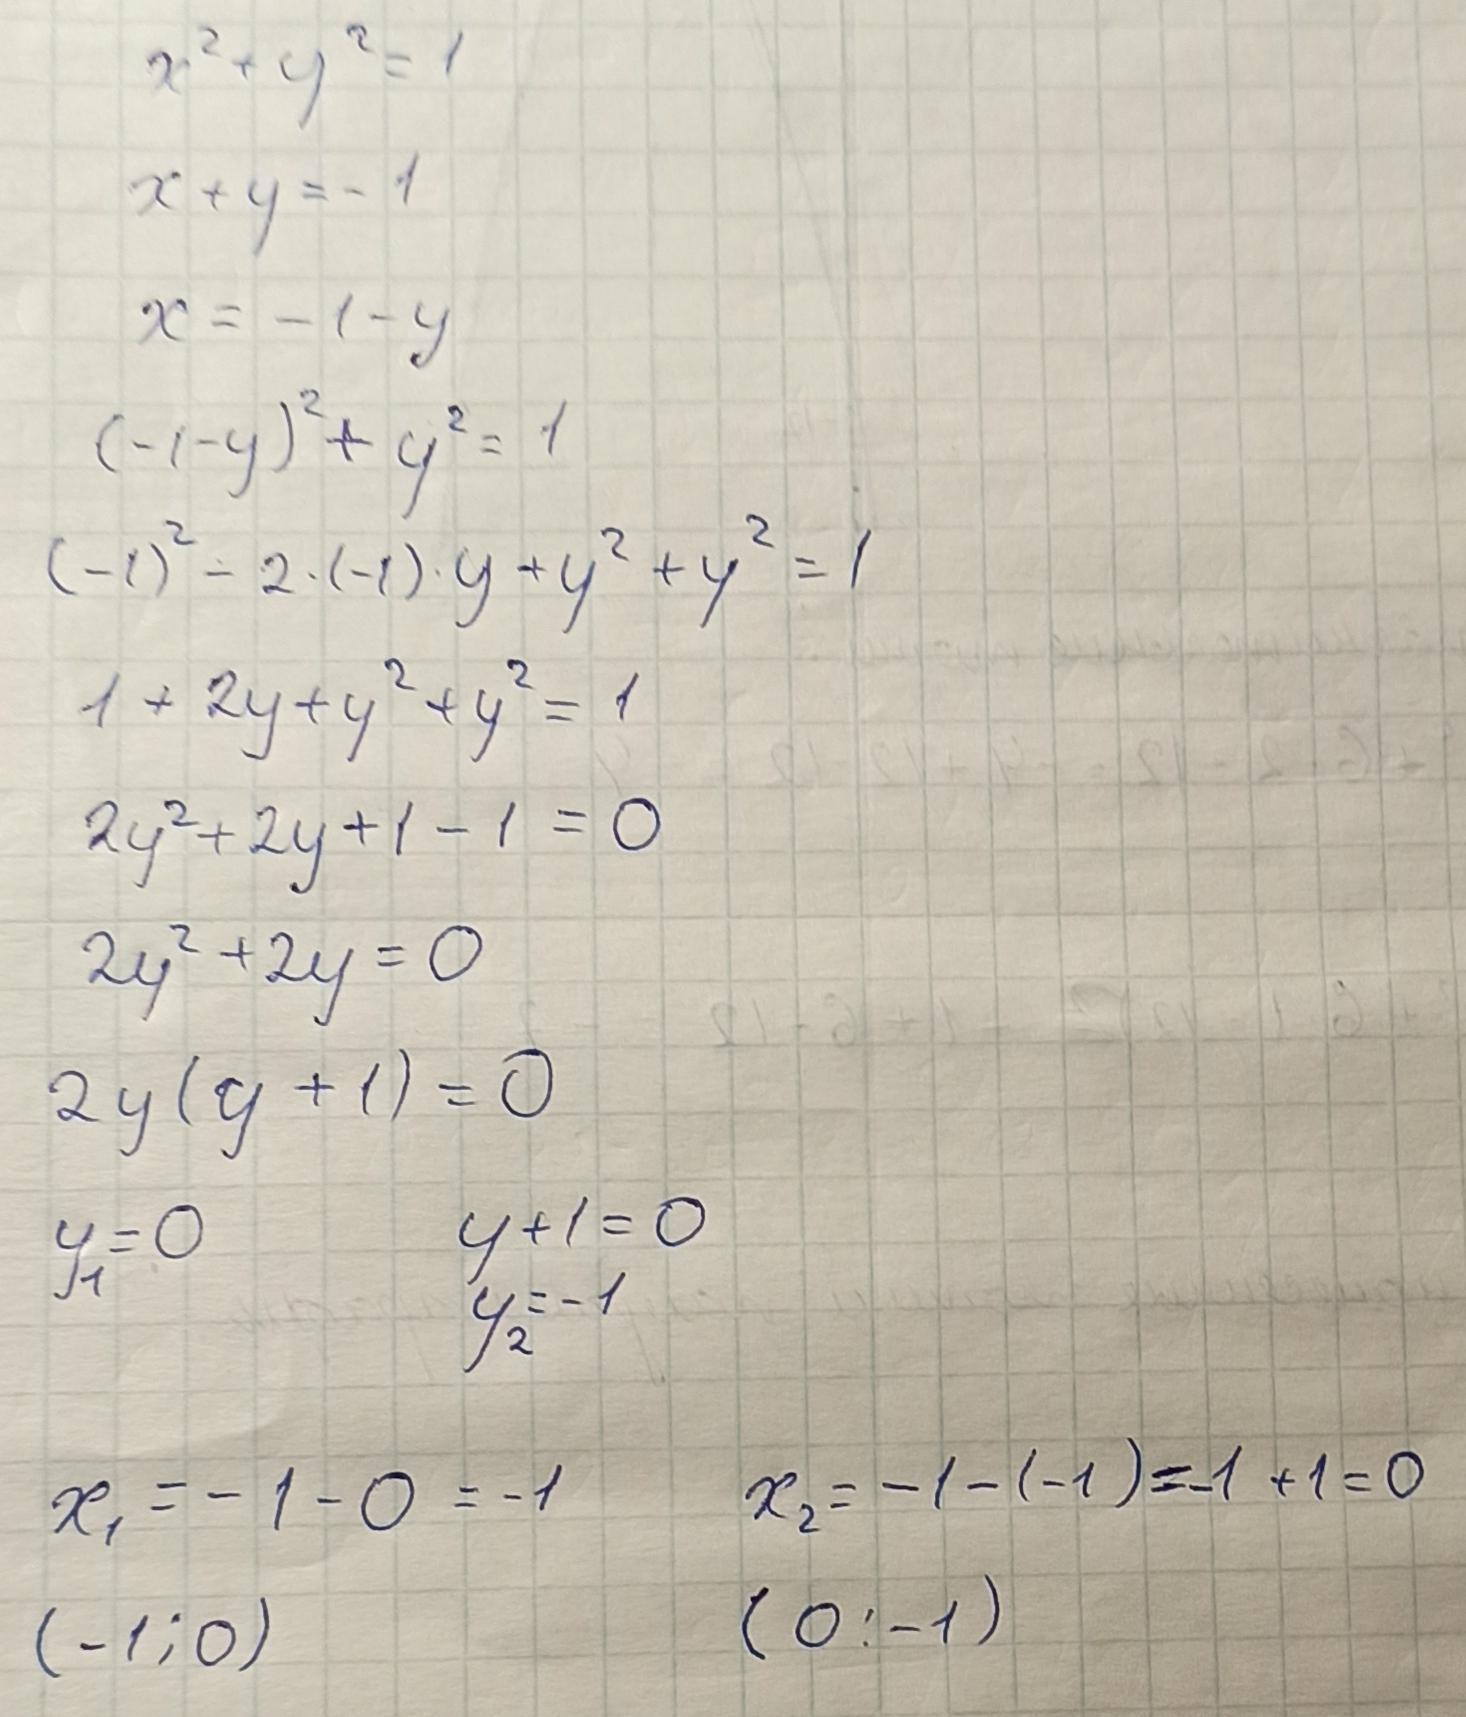 x² + y² = 1
x + y = -1
x = -1 - y
(-1-y)² + y² = 1
(-1)² - 2·(-1)·y + y² + y² = 1
1 + 2y + y² + y² = 1
2y² + 2y + 1 - 1 = 0
2y² + 2y = 0
2y(y + 1) = 0
y₁ = 0 y + 1 = 0
y₂ = -1
x₁ = -1 - 0 = -1 x₂ = -1 - (-1) = -1 + 1 = 0
(-1; 0) (0; -1)